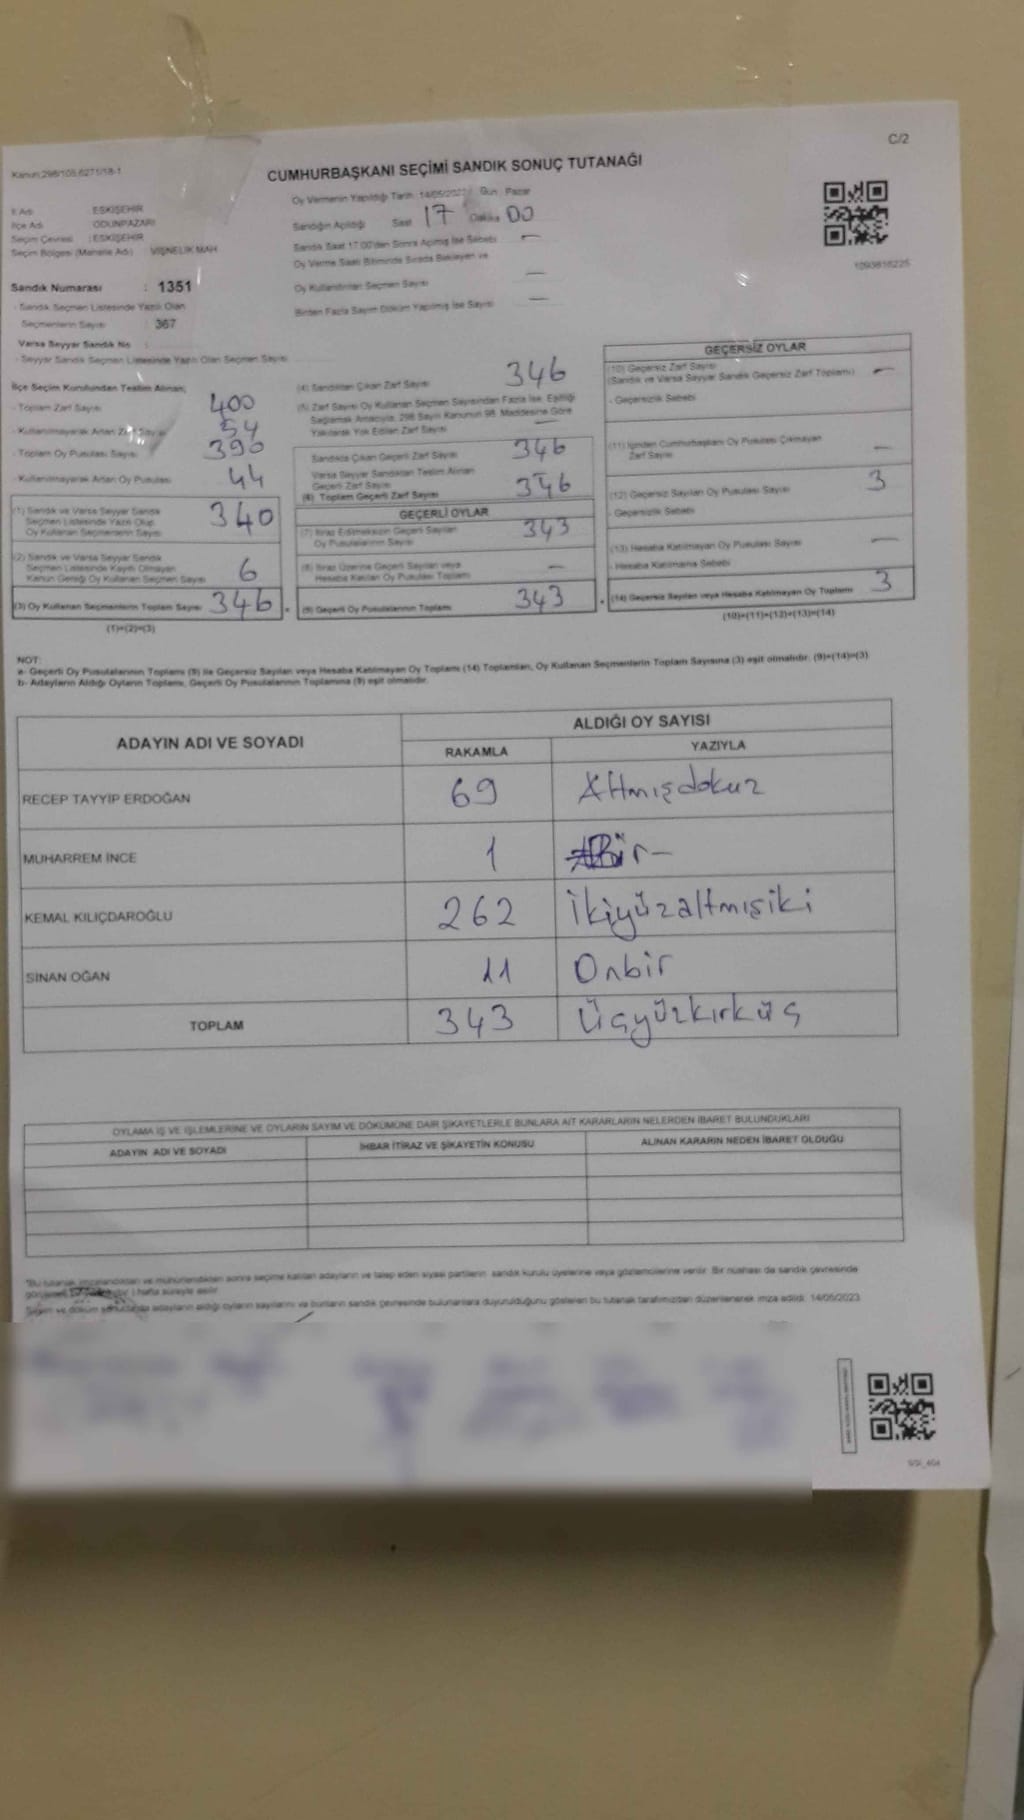 C/2
Kanun:298/105,6271/18-1
CUMHURBAŞKANI SEÇİMİ SANDIK SONUÇ TUTANAĞI
İl Adı : ESKİŞEHİR
İlçe Adı : ODUNPAZARI
Seçim Çevresi : ESKİŞEHİR
Seçim Bölgesi (Mahalle Adı) : VİŞNELİK MAH
Sandık Numarası : 1351
- Sandık Seçmen Listesinde Yazılı Olan
Seçmenlerin Sayısı : 367
Varsa Seyyar Sandık No :
- Seyyar Sandık Seçmen Listesinde Yazılı Olan Seçmen Sayısı :
Oy Vermenin Yapıldığı Tarih :14/05/2023 Gün : Pazar
Sandığın Açıldığı Saat 17 Dakika 00
Sandık Saat 17:00'den Sonra Açılmış İse Sebebi —
Oy Verme Saati Bitiminde Sırada Bekleyen ve
Oy Kullandırılan Seçmen Sayısı —
Birden Fazla Sayım Döküm Yapılmış İse Sayısı —
1093816225
İlçe Seçim Kurulundan Teslim Alınan;
- Toplam Zarf Sayısı 400
- Kullanılmayarak Artan Zarf Sayısı 54
- Toplam Oy Pusulası Sayısı 390
- Kullanılmayarak Artan Oy Pusulası 44
(1) Sandık ve Varsa Seyyar Sandık
Seçmen Listesinde Yazılı Olup
Oy Kullanan Seçmenlerin Sayısı 340
(2) Sandık ve Varsa Seyyar Sandık
Seçmen Listesinde Kayıtlı Olmayan
Kanun Gereği Oy Kullanan Seçmen Sayısı 6
(3) Oy Kullanan Seçmenlerin Toplam Sayısı 346
(1)+(2)=(3)
(4) Sandıktan Çıkan Zarf Sayısı 346
(5) Zarf Sayısı Oy Kullanan Seçmen Sayısından Fazla İse, Eşitliği
Sağlamak Amacıyla, 298 Sayılı Kanunun 98. Maddesine Göre
Yakılarak Yok Edilen Zarf Sayısı —
Sandıkta Çıkan Geçerli Zarf Sayısı 346
Varsa Seyyar Sandıktan Teslim Alınan
Geçerli Zarf Sayısı
(6) Toplam Geçerli Zarf Sayısı 346
GEÇERLİ OYLAR
(7) İtiraz Edilmeksizin Geçerli Sayılan
Oy Pusulalarının Sayısı 343
(8) İtiraz Üzerine Geçerli Sayılan veya
Hesaba Katılan Oy Pusulası Toplamı —
(9) Geçerli Oy Pusulalarının Toplamı 343
GEÇERSİZ OYLAR
(10) Geçersiz Zarf Sayısı
(Sandık ve Varsa Seyyar Sandık Geçersiz Zarf Toplamı) —
- Geçersizlik Sebebi
(11) İçinden Cumhurbaşkanı Oy Pusulası Çıkmayan
Zarf Sayısı —
(12) Geçersiz Sayılan Oy Pusulası Sayısı 3
- Geçersizlik Sebebi
(13) Hesaba Katılmayan Oy Pusulası Sayısı —
- Hesaba Katılmama Sebebi
(14) Geçersiz Sayılan veya Hesaba Katılmayan Oy Toplamı 3
(10)+(11)+(12)+(13)=(14)
NOT:
a- Geçerli Oy Pusulalarının Toplamı (9) ile Geçersiz Sayılan veya Hesaba Katılmayan Oy Toplamı (14) Toplamları, Oy Kullanan Seçmenlerin Toplam Sayısına (3) eşit olmalıdır. (9)+(14)=(3)
b- Adayların Aldığı Oyların Toplamı, Geçerli Oy Pusulalarının Toplamına (9) eşit olmalıdır.
ADAYIN ADI VE SOYADI ALDIĞI OY SAYISI
RAKAMLA YAZIYLA
RECEP TAYYİP ERDOĞAN 69 Altmışdokuz
MUHARREM İNCE 1 Bir —
KEMAL KILIÇDAROĞLU 262 İkiyüzaltmışiki
SİNAN OĞAN 11 Onbir
TOPLAM 343 Üçyüzkırküç
OYLAMA İŞ VE İŞLEMLERİNE VE OYLARIN SAYIM VE DÖKÜMÜNE DAİR ŞİKAYETLERLE BUNLARA AİT KARARLARIN NELERDEN İBARET BULUNDUKLARI
ADAYIN ADI VE SOYADI İHBAR İTİRAZ VE ŞİKAYETİN KONUSU ALINAN KARARIN NEDEN İBARET OLDUĞU
*Bu tutanak imzalandıktan ve mühürlendikten sonra seçime katılan adayların ve talep eden siyasi partilerin sandık kurulu üyelerine veya gözlemcilerine verilir. Bir nüshası da sandık çevresinde
1 hafta süreyle asılır.
Sayım ve döküm sonucunda adayların aldığı oyların sayılarını ve bunların sandık çevresinde bulunanlara duyurulduğunu gösteren bu tutanak tarafımızdan düzenlenerek imza edildi. 14/05/2023